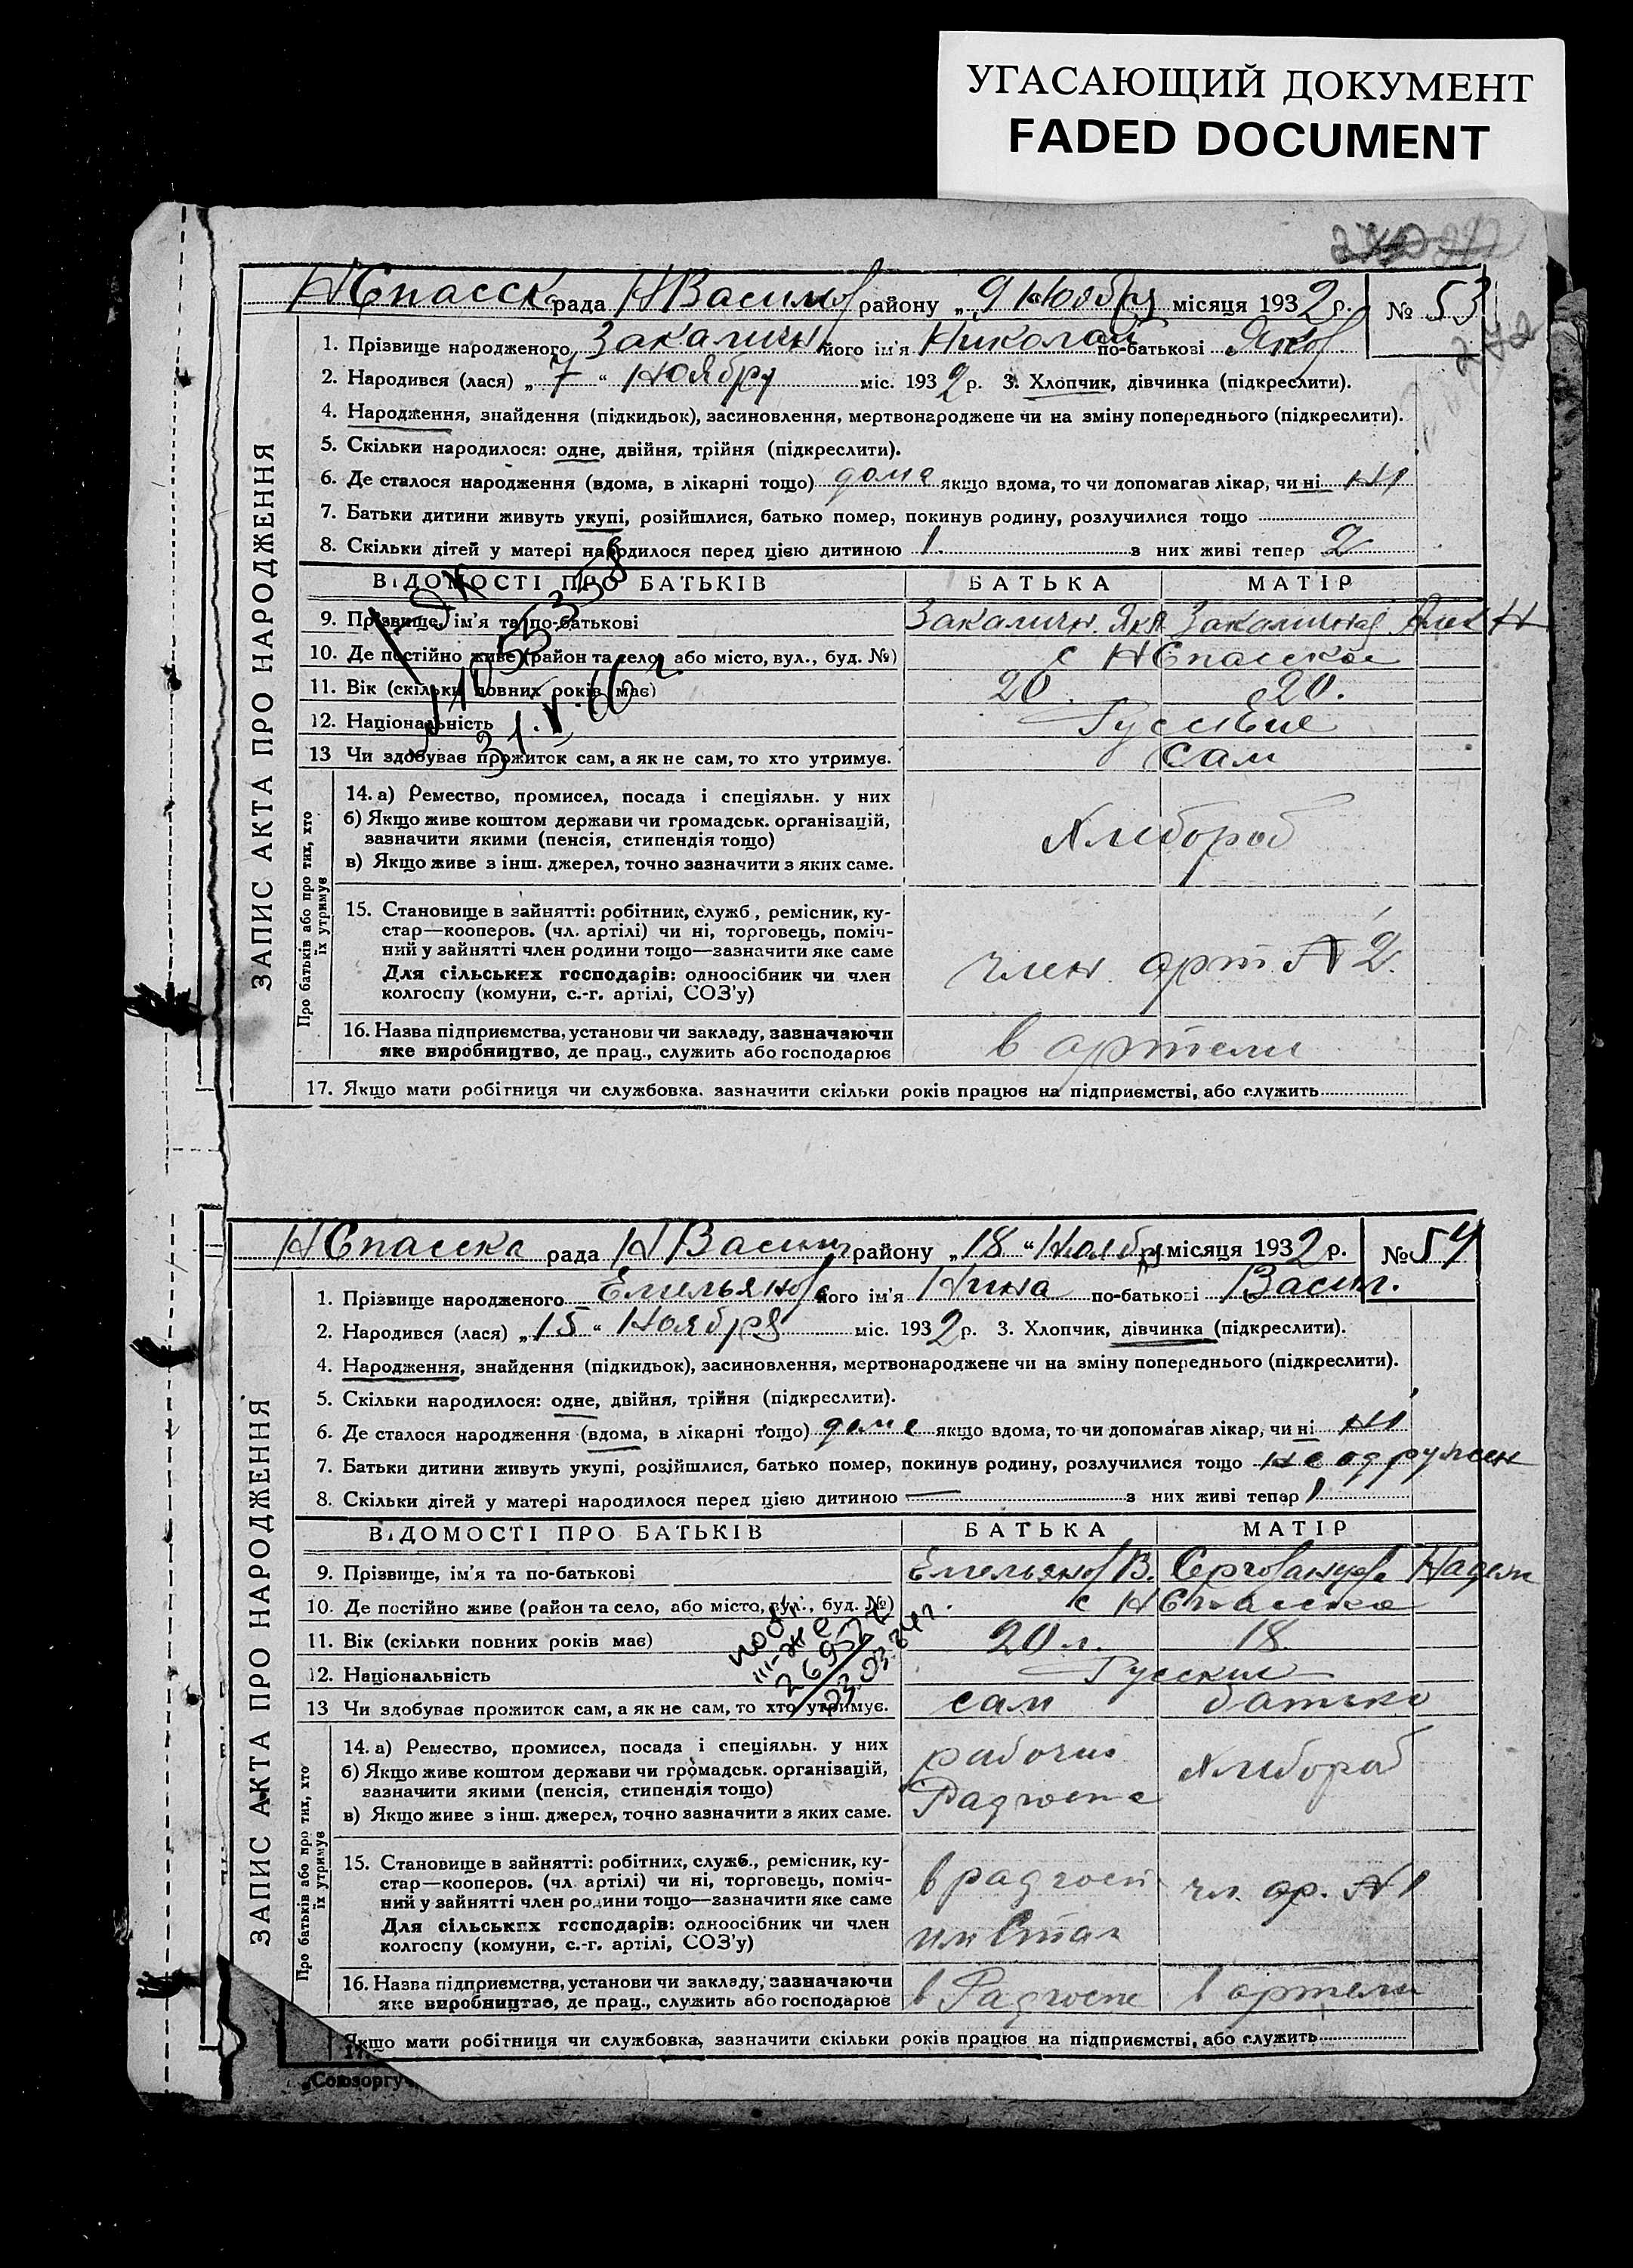 УГАСАЮЩИЙ ДОКУМЕНТ
FADED DOCUMENT
НСпасск рада НВасилов району „ 9 Ноября місяця 1932 р. № 53
1. Прізвище народженого Закалин його ім'я Николай по-батькові Яков
2. Народився (лася) „ 7 “ Ноября міс. 1932 р. 3. Хлопчик, дівчинка (підкреслити).
4. Народження, знайдення (підкидьок), засиновлення, мертвонароджене чи на зміну попереднього (підкреслити).
5. Скільки народилося: одне, двійня, трійня (підкреслити).
6. Де сталося народження (вдома, в лікарні тощо) дома якщо вдома, то чи допомагав лікар, чи ні Ні
7. Батьки дитини живуть укупі, розійшлися, батько помер, покинув родину, розлучилися тощо
8. Скільки дітей у матері народилося перед цією дитиною 1 з них живі тепер 2
ВІДОМОСТІ ПРО БАТЬКІВ БАТЬКА МАТІР
9. Прізвище, ім'я та по-батькові Закалин. Закалина
10. Де постійно живе (район та село, або місто, вул., буд. №) с НСпасское
11. Вік (скільки повних років має) 20 20.
12. Національність Русские
13 Чи здобуває прожиток сам, а як не сам, то хто утримує. Сам
31.V.66 г.
14. а) Ремество, промисел, посада і спеціяльн. у них
б) Якщо живе коштом держави чи громадськ. організацій,
зазначити якими (пенсія, стипендія тощо)
в) Якщо живе з інш. джерел, точно зазначити з яких саме.
Хлибороб
15. Становище в зайнятті: робітник, служб., ремісник, ку-
стар—кооперов. (чл. артілі) чи ні, торговець, поміч-
ний у зайнятті член родини тощо—зазначити яке саме
Для сільських господарів: одноосібник чи член
колгоспу (комуни, с.-г. артілі, СОЗ'у)
член арт. № 2.
16. Назва підприємства, установи чи закладу, зазначаючи
яке виробництво, де прац., служить або господарює
в артели
17. Якщо мати робітниця чи службовка, зазначити скільки років працює на підприємстві, або служить
ЗАПИС АКТА ПРО НАРОДЖЕННЯ
Про батьків або про тих, хто
їх утримує
НСпасска рада НВасил району „ 18 “ Ноября місяця 1932 р. № 54
1. Прізвище народженого Емельянова його ім'я Нина по-батькові Васил.
2. Народився (лася) „ 15 “ Ноября міс. 1932 р. 3. Хлопчик, дівчинка (підкреслити).
4. Народження, знайдення (підкидьок), засиновлення, мертвонароджене чи на зміну попереднього (підкреслити).
5. Скільки народилося: одне, двійня, трійня (підкреслити).
6. Де сталося народження (вдома, в лікарні тощо) дома якщо вдома, то чи допомагав лікар, чи ні Ні
7. Батьки дитини живуть укупі, розійшлися, батько помер, покинув родину, розлучилися тощо не одружен
8. Скільки дітей у матері народилося перед цією дитиною — з них живі тепер 1
ВІДОМОСТІ ПРО БАТЬКІВ БАТЬКА МАТІР
9. Прізвище, ім'я та по-батькові Емельянов В. Надеж
10. Де постійно живе (район та село, або місто, вул., буд. №) с НСпасско
11. Вік (скільки повних років має) 20 л. 18
12. Національність Русские
13 Чи здобуває прожиток сам, а як не сам, то хто утримує. сам батько
14. а) Ремество, промисел, посада і спеціяльн. у них
б) Якщо живе коштом держави чи громадськ. організацій,
зазначити якими (пенсія, стипендія тощо)
в) Якщо живе з інш. джерел, точно зазначити з яких саме.
рабочий
Радгоспе
Хлибороб
15. Становище в зайнятті: робітник, служб., ремісник, ку-
стар—кооперов. (чл. артілі) чи ні, торговець, поміч-
ний у зайнятті член родини тощо—зазначити яке саме
Для сільських господарів: одноосібник чи член
колгоспу (комуни, с.-г. артілі, СОЗ'у)
в радгосп
чл. ар. № 1
16. Назва підприємства, установи чи закладу, зазначаючи
яке виробництво, де прац., служить або господарює
в Радгоспе в артели
Якщо мати робітниця чи службовка, зазначити скільки років працює на підприємстві, або служить
ЗАПИС АКТА ПРО НАРОДЖЕННЯ
Про батьків або про тих, хто
їх утримує